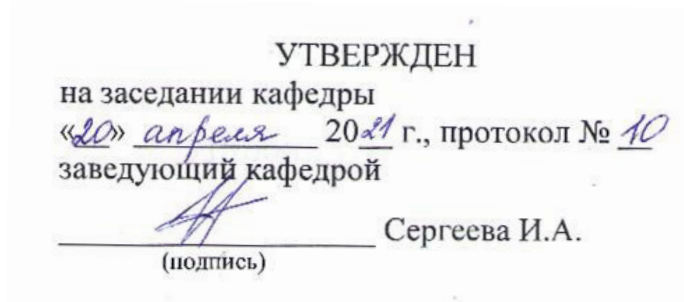 УТВЕРЖДЕН
на заседании кафедры
«20» апреля 2021 г., протокол № 10
заведующий кафедрой
Сергеева И.А.
(подпись)